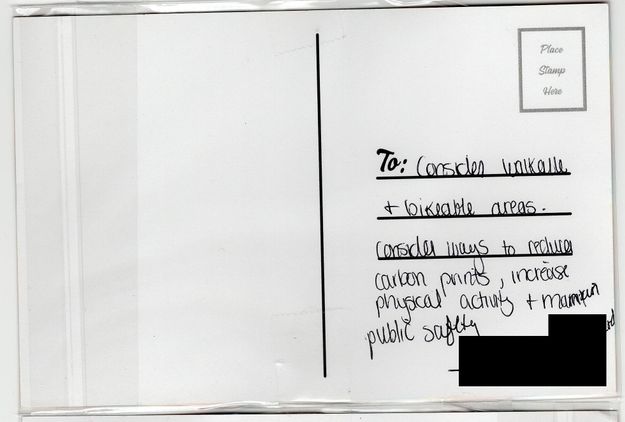 Place
Stamp
Here
To: Consider walkable
+ bikeable areas.
Consider ways to reduce
carbon prints, increase
physical activity + maintain
public safety